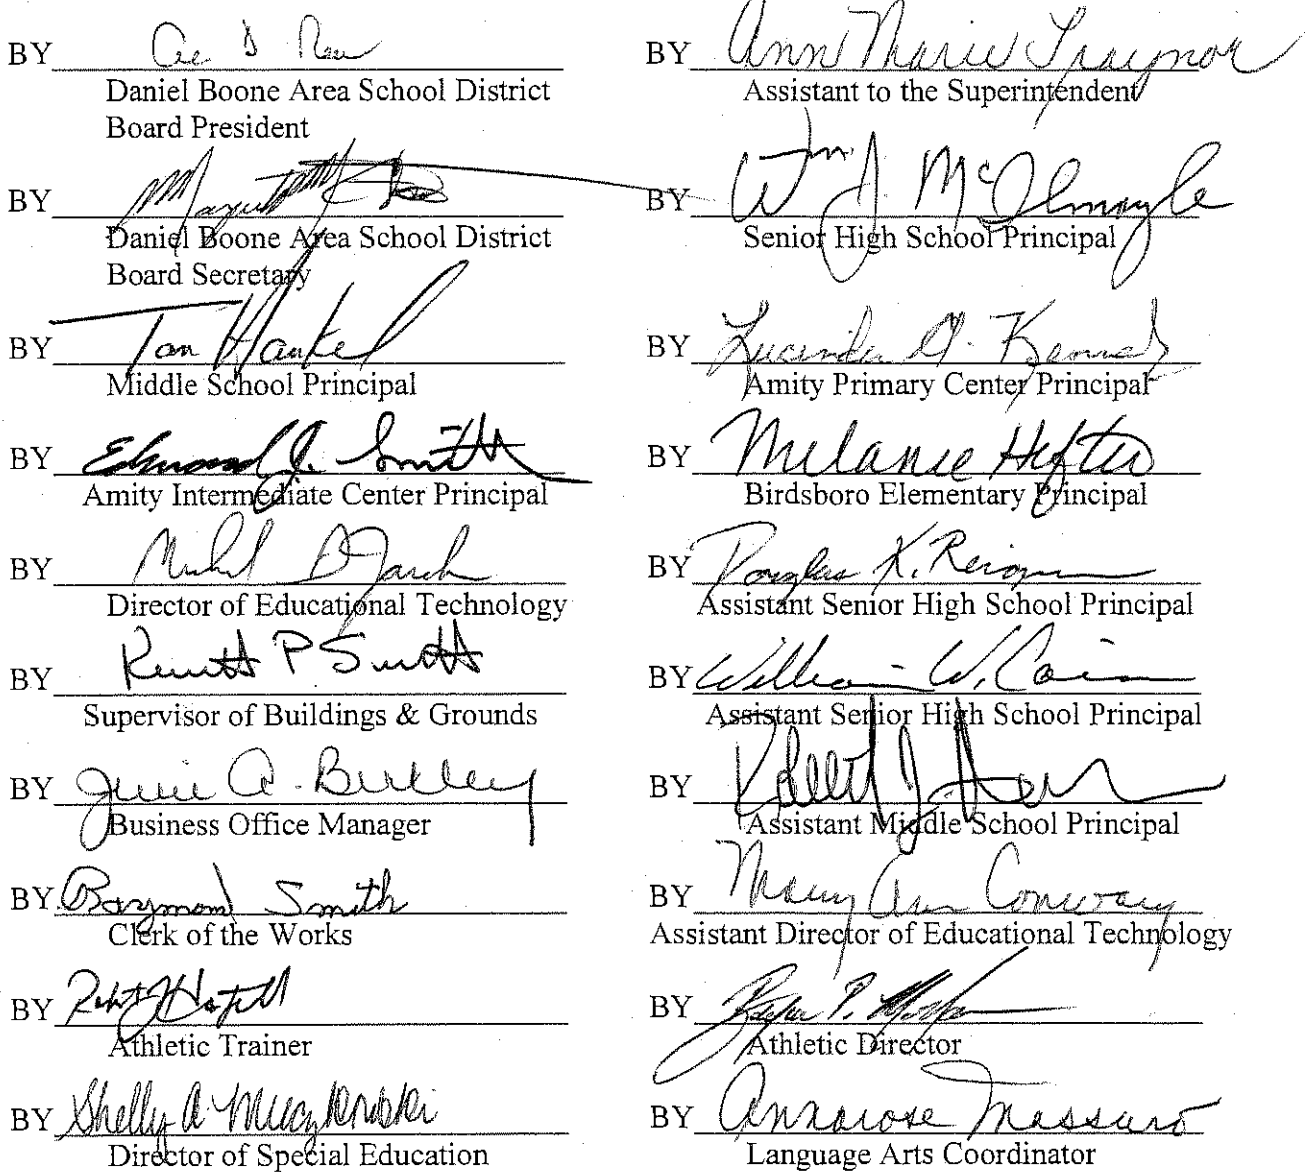 BY
Daniel Boone Area School District
Board President
BY
Daniel Boone Area School District
Board Secretary
BY Tom Hankel
Middle School Principal
BY Edmond J. Smith
Amity Intermediate Center Principal
BY
Director of Educational Technology
BY P Smith
Supervisor of Buildings & Grounds
BY A. Buckley
Business Office Manager
BY Raymond Smith
Clerk of the Works
BY
Athletic Trainer
BY Shelly A.
Director of Special Education
BY Ann Marie Traynor
Assistant to the Superintendent
BY Wm J. McIlmoyle
Senior High School Principal
BY Lucinda
Amity Primary Center Principal
BY Melanie
Birdsboro Elementary Principal
BY Douglas K.
Assistant Senior High School Principal
BY William W. Cain
Assistant Senior High School Principal
BY Robert J.
Assistant Middle School Principal
BY Mary Ann Conway
Assistant Director of Educational Technology
BY P.
Athletic Director
BY Annarose Massaro
Language Arts Coordinator